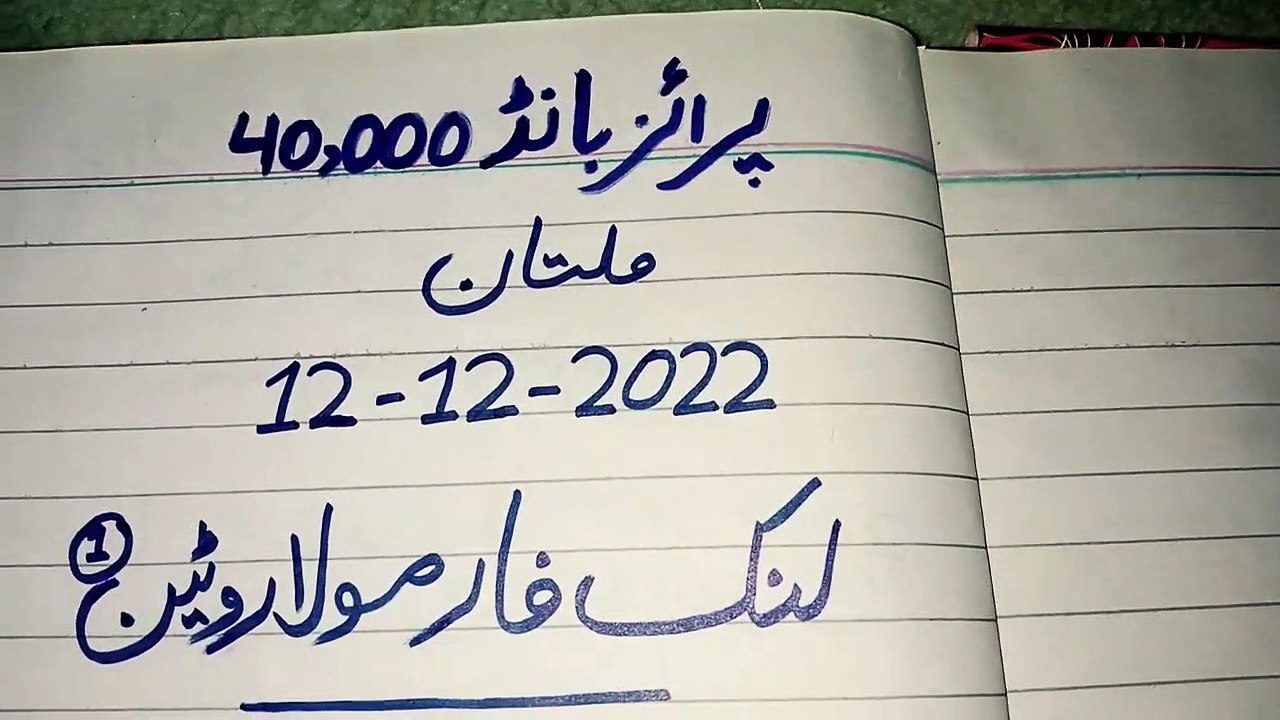 پرائز بانڈ 40,000
ملتان
12-12-2022
لنک فارمولا روٹین 1